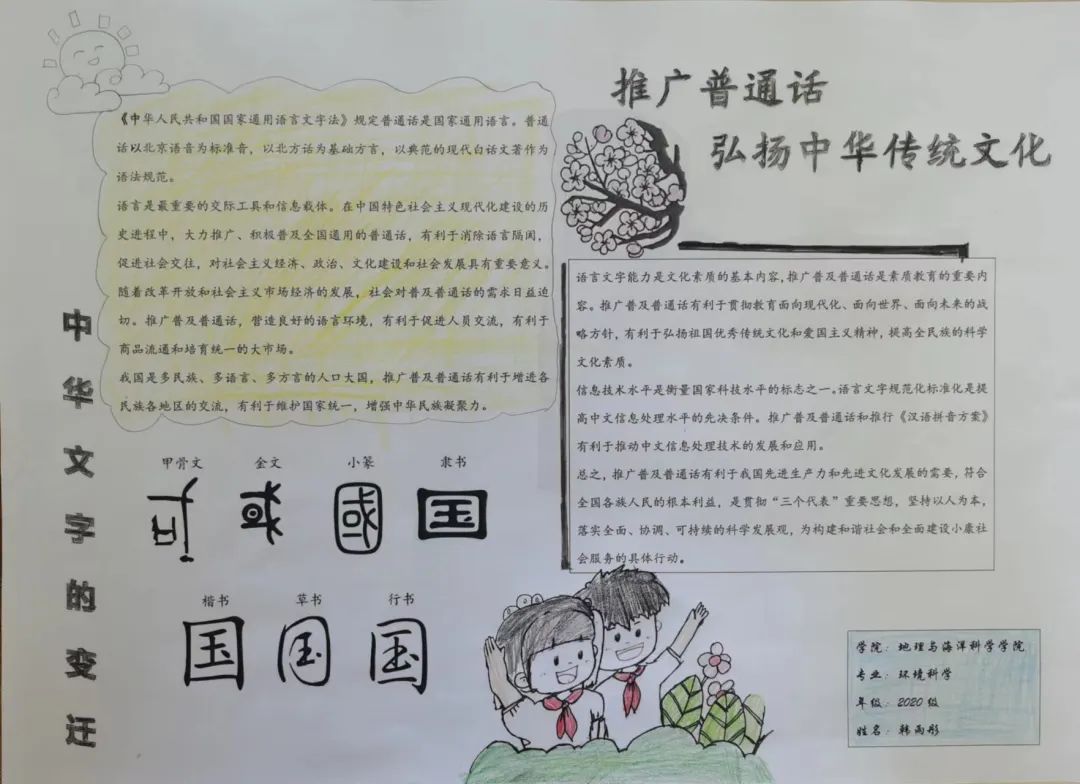 推广普通话
弘扬中华传统文化
《中华人民共和国国家通用语言文字法》规定普通话是国家通用语言。普通
话以北京语音为标准音，以北方话为基础方言，以典范的现代白话文著作为
语法规范。
语言是最重要的交际工具和信息载体。在中国特色社会主义现代化建设的历
史进程中，大力推广、积极普及全国通用的普通话，有利于消除语言隔阂，
促进社会交往，对社会主义经济、政治、文化建设和社会发展具有重要意义。
随着改革开放和社会主义市场经济的发展，社会对普及普通话的需求日益迫
切。推广普及普通话，营造良好的语言环境，有利于促进人员交流，有利于
商品流通和培育统一的大市场。
我国是多民族、多语言、多方言的人口大国，推广普及普通话有利于增进各
民族各地区的交流，有利于维护国家统一，增强中华民族凝聚力。
语言文字能力是文化素质的基本内容，推广普及普通话是素质教育的重要内
容。推广普及普通话有利于贯彻教育面向现代化、面向世界、面向未来的战
略方针，有利于弘扬祖国优秀传统文化和爱国主义精神，提高全民族的科学
文化素质。
信息技术水平是衡量国家科技水平的标志之一。语言文字规范化标准化是提
高中文信息处理水平的先决条件。推广普及普通话和推行《汉语拼音方案》
有利于推动中文信息处理技术的发展和应用。
总之，推广普及普通话有利于我国先进生产力和先进文化发展的需要，符合
全国各族人民的根本利益，是贯彻“三个代表”重要思想，坚持以人为本，
落实全面、协调、可持续的科学发展观，为构建和谐社会和全面建设小康社
会服务的具体行动。
中华文字的变迁
甲骨文 金文 小篆 隶书
或 或 國 国
楷书 草书 行书
国 国 国
学院：地理与海洋科学学院
专业：环境科学
年级：2020级
姓名：韩雨彤